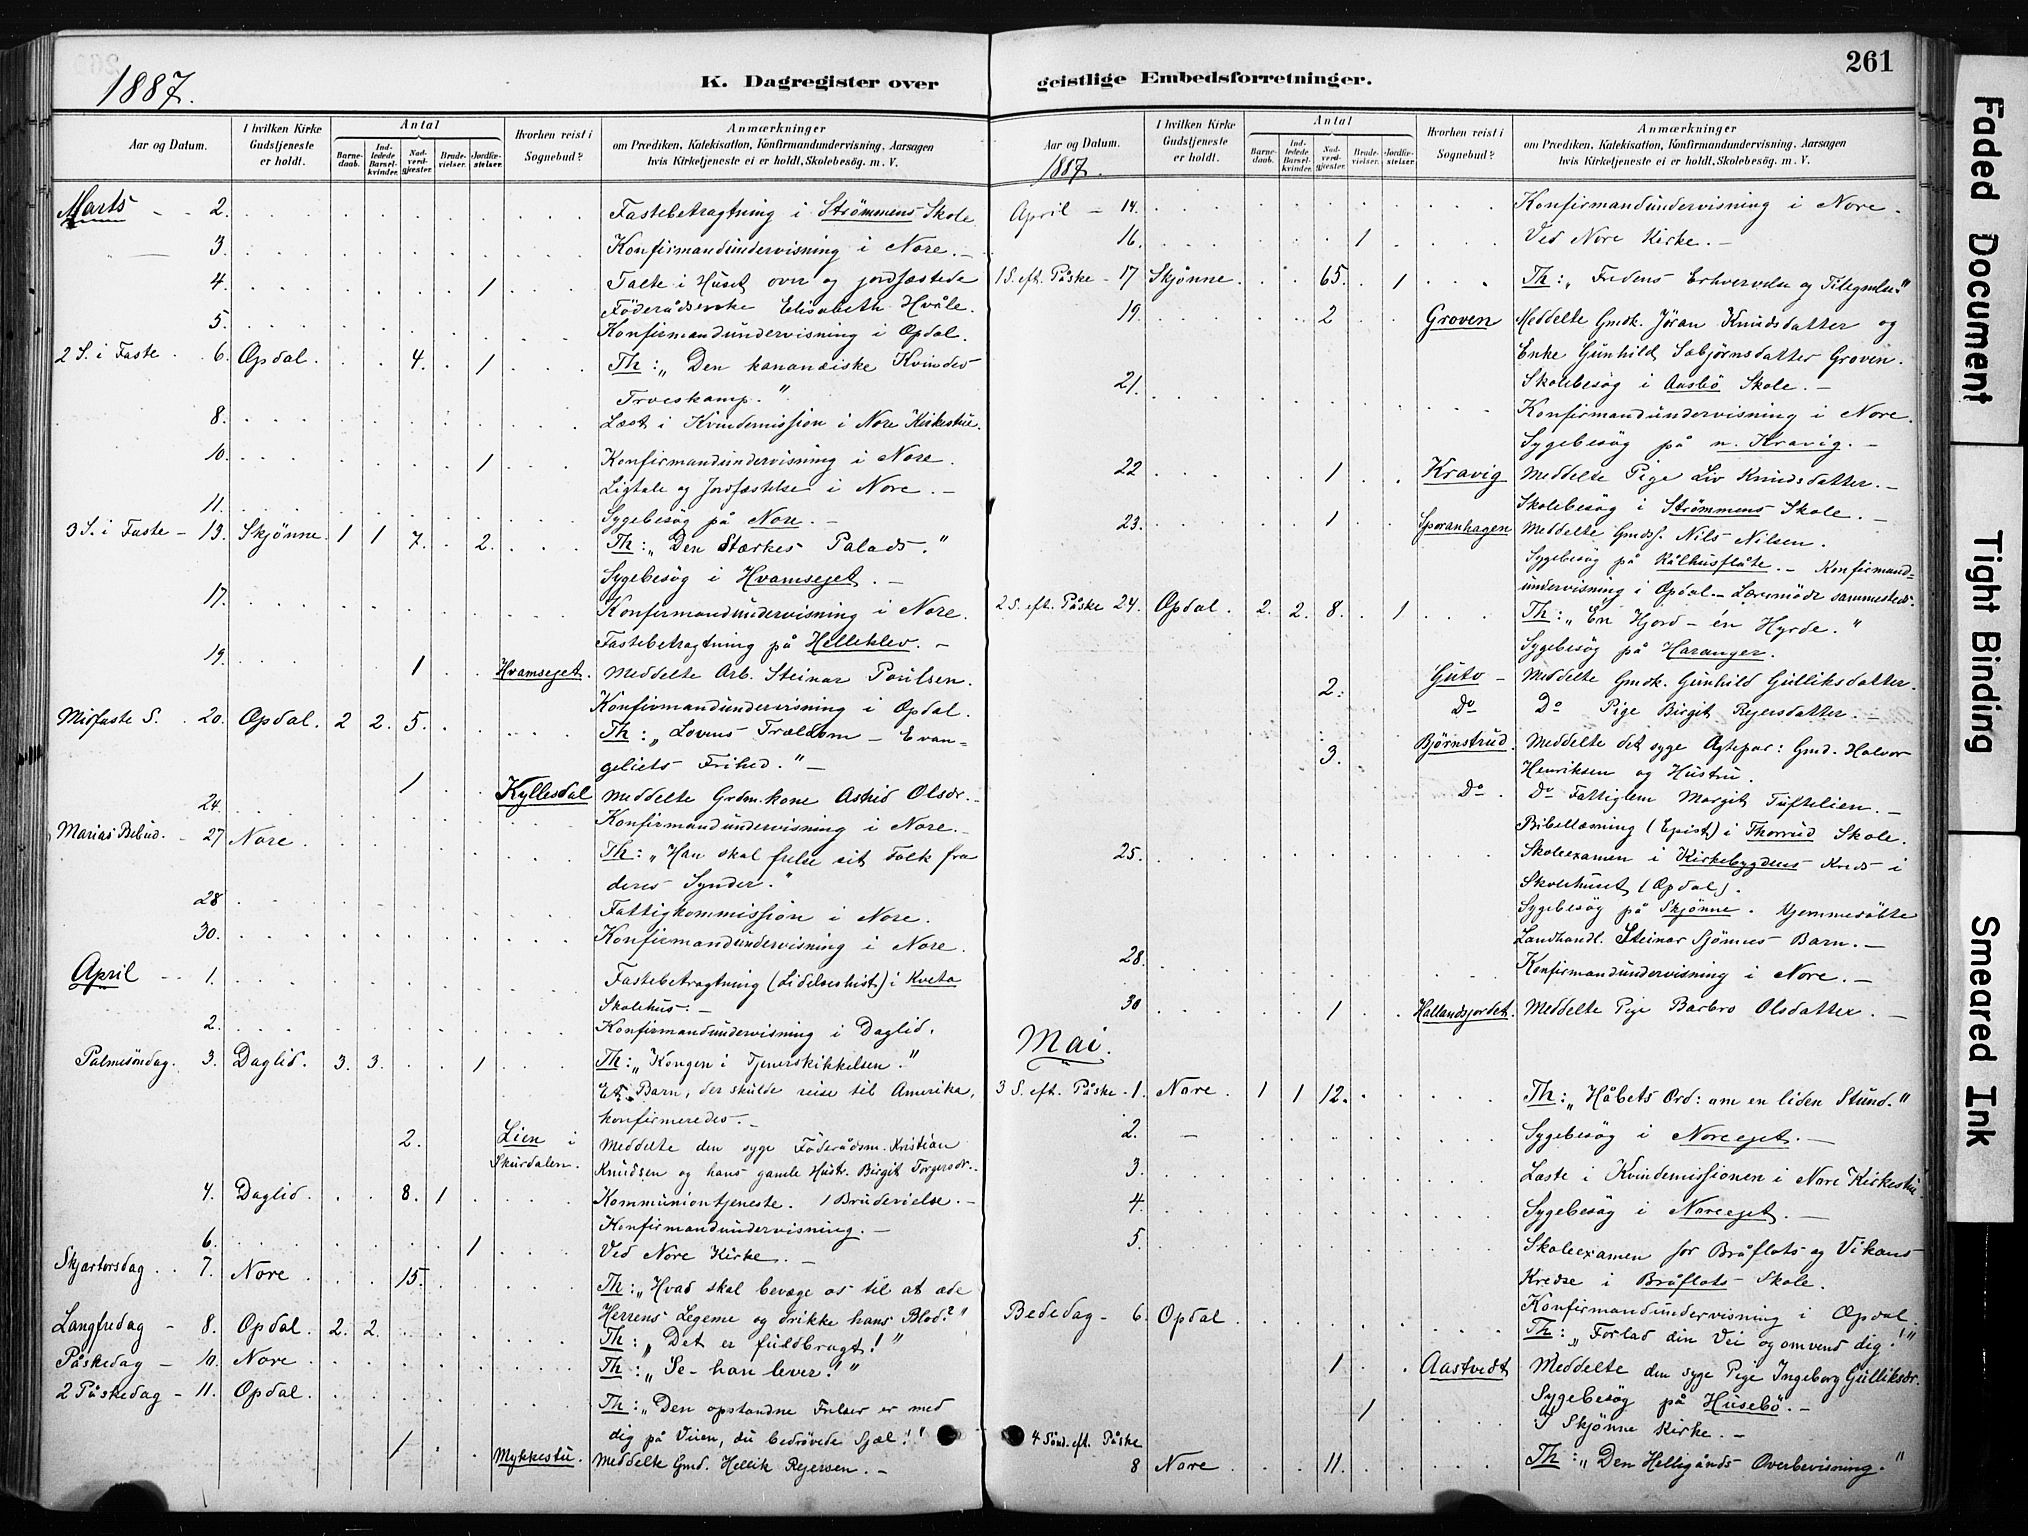 1887.
K. Dagregister over
Aar og Datum.
I hvilken Kirke Gudstjeneste er holdt.
Antal
Barne-daab.
Ind-ledede Barsel-kvinder.
Nad-verd-gjæster.
Brude-vielser.
Jordfæ-stelser.
Hvorhen reist i Sognebud?
Anmærkninger
om Prædiken, Katekisation, Konfirmandundervisning, Aarsagen
hvis Kirketjeneste ei er holdt, Skolebesög. m. V.
Marts 2. Fastebetragtning i Strömmens Skole
3. Konfirmandundervisning i Nore. –
4. 1 Talte i Huset over og jordfæstede
Föderådsenke Elisabeth Hvåle.
5. Konfirmandundervisning i Opdal.
2 S. i Faste 6. Opdal. 4. 1 Th: „Den kananæiske Kvindes
Troeskamp."
8. Læst i Kvindemission i Nore Kirkestue.
10. 1 Konfirmandundervisning i Nore.
Ligtale og Jordfæstelse i Nore. –
11. Sygebesög på Nore. –
3 S. i Faste – 13. Skjönne. 1 1 7. 2. Th: „Den Stærkes Palads."
Sygebesög i Hvamsejet. –
17. Konfirmandundervisning i Nore.
Fastebetragtning på Helleklev. –
19. 1 Hvamsejet. Meddelte Arb. Steinar Poulsen.
Konfirmandundervisning i Opdal.
Midfaste S. 20. Opdal. 2 2. 5. Th: „Lovens Trældom – Evan-
geliets Frihed." –
1 Kyllesdal Meddelte Grdm.kone Astrid Olsdr. –
24. Konfirmandundervisning i Nore. –
Marias Bebud. – 27 Nore. Th: „Han skal frelse sit Folk fra
deres Synder."
28 Fattigkommission i Nore.
30. Konfirmandundervisning i Nore.
April 1. Fastebetragtning (Lidelseshist) i Kveta
Skolehus: –
2. Konfirmandundervisning i Daglid.
Palmesöndag. 3. Daglid. 3. 3. 1 Th: „Kongen i Tjenerskikkelsen."
Et Barn, der skulde reise til Amerika,
konfirmeredes. –
2. Lien i Skurdalen. Meddelte den syge Föderådsm. Kristian
Knudsen og hans gamle Hustr. Birgit Torgersdr.
4. Daglid. 8. 1 Kommuniontjeneste. 1 Brudevielse. –
Konfirmandundervisning. –
6. 1 Ved Nore Kirke. –
Skjærtorsdag 7. Nore 15. Th: „Hvad skal bevæge os til at æde
Herrens Legeme og drikke hans Blod?"
Langfredag – 8. Opdal. 2. 2. Th: „Det er fuldbragt!"
Påskedag – 10. Nore. Th: „Se – han lever!"
2 Påskedag – 11. Opdal. Th: „Den opstandne Frelser er med
dig på Veien, du bedrövede Sjæl!"
1 Mykkestu. Meddelte Gmd. Hellik Rejersen. –
geistlige Embedsforretninger.
261
Aar og Datum.
1887.
I hvilken Kirke Gudstjeneste er holdt.
Antal
Barne-daab.
Ind-ledede Barsel-kvinder.
Nad-verd-gjæster.
Brude-vielser.
Jordfæ-stelser.
Hvorhen reist i Sognebud?
Anmærkninger
om Prædiken, Katekisation, Konfirmandundervisning, Aarsagen
hvis Kirketjeneste ei er holdt, Skolebesög. m. V.
April – 14. Konfirmandundervisning i Nore.
16. 1 Ved Nore Kirke. –
1 S. eft. Påske – 17 Skjönne. 65. 1 Th: „Fredens Erhvervelse og Tilegnelse"
19. 2 Groven Meddelte Gmdk. Jöran Knudsdatter og
Enke Gunhild Sebjörnsdatter Groven.
21. Skolebesög i Aasbö Skole. –
Konfirmandundervisning i Nore.
Sygebesög på n. Kravig. –
22 1 Kravig Meddelte Pige Liv Knudsdatter. –
Skolebesög i Strömmens Skole. –
23. 1 Sporanhagen Meddelte Gmds. Nils Nilsen.
Sygebesög på Kålhusflåte. – Konfirmand-
undervisning i Opdal. – Læremöde sammesteds.
2 S. eft. Påske 24. Opdal. 2. 2. 8. 1 Th: „En Hjord – én Hyrde."
Sygebesög på Haranger.
2. Guto – Meddelte Gmdk. Gunhild Gulliksdatter.
Do Do Pige Birgit Rejersdatter. –
3. Björnstrud. Meddelte det syge Ægtepar: Gmd. Halvor
Henriksen og Hustru.
Do. Do Fattiglem Margit Tuftelien. –
Bibellæsning (Epist) i Thorrud Skole.
25. Skoleexamen i Kirkebygdens Kreds i
Skolehuset (Opdal).
Sygebesög på Skjönne. Hjemmedöbte
Landhandl. Steinar Sjönnes Barn. –
28. Konfirmandundervisning i Nore. –
30 1 Hallandsjordet. Meddelte Pige Barbro Olsdatter. –
Mai.
3 S. eft. Påske 1. Nore. 1 1 12. Th: „Håbets Ord: om en liden Stund."
2. – Sygebesög i Noreejet. –
3. Læste i Kvindemissionen i Nore Kirkestue
4. Sygebesög i Noreejet. –
5. Skoleexamen for Bråflots og Vikans
Kredse i Bråflots Skole.
Konfirmandundervisning i Opdal.
Bededag – 6. Opdal. Th: „Forlad din Vei og omvend dig!"
1 Aastvedt Meddelte den syge Pige Ingeborg Gulliksdr.
Sygebesög på Husebö. –
1 I Skjönne Kirke. –
4 Sönd. eft. Påske
8 Nore. 11. Th: „Den Helligånds Overbevisning."
Faded Document
Tight Binding
Smeared Ink